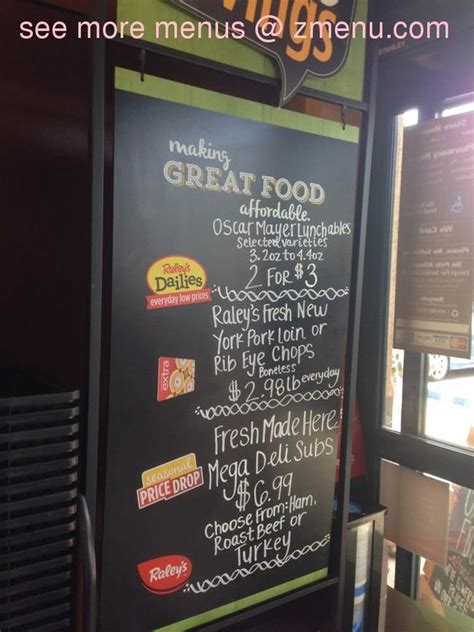 see more menus @ zmenu.com
making
GREAT FOOD
affordable.
Oscar Mayer Lunchables
Selected varieties
3.2oz to 4.4oz
2 FOR $3
Raley's
DAILIES
everyday low prices
Raley's Fresh New
York Pork Loin or
Rib Eye Chops
Boneless
$2.98lb everyday
extra
Fresh Made Here
Mega Deli Subs
$6.99
Choose From: Ham,
Roast Beef or
Turkey
seasonal
PRICE DROP
Raley's
Store Hou
Pharmacy Ho
We Card